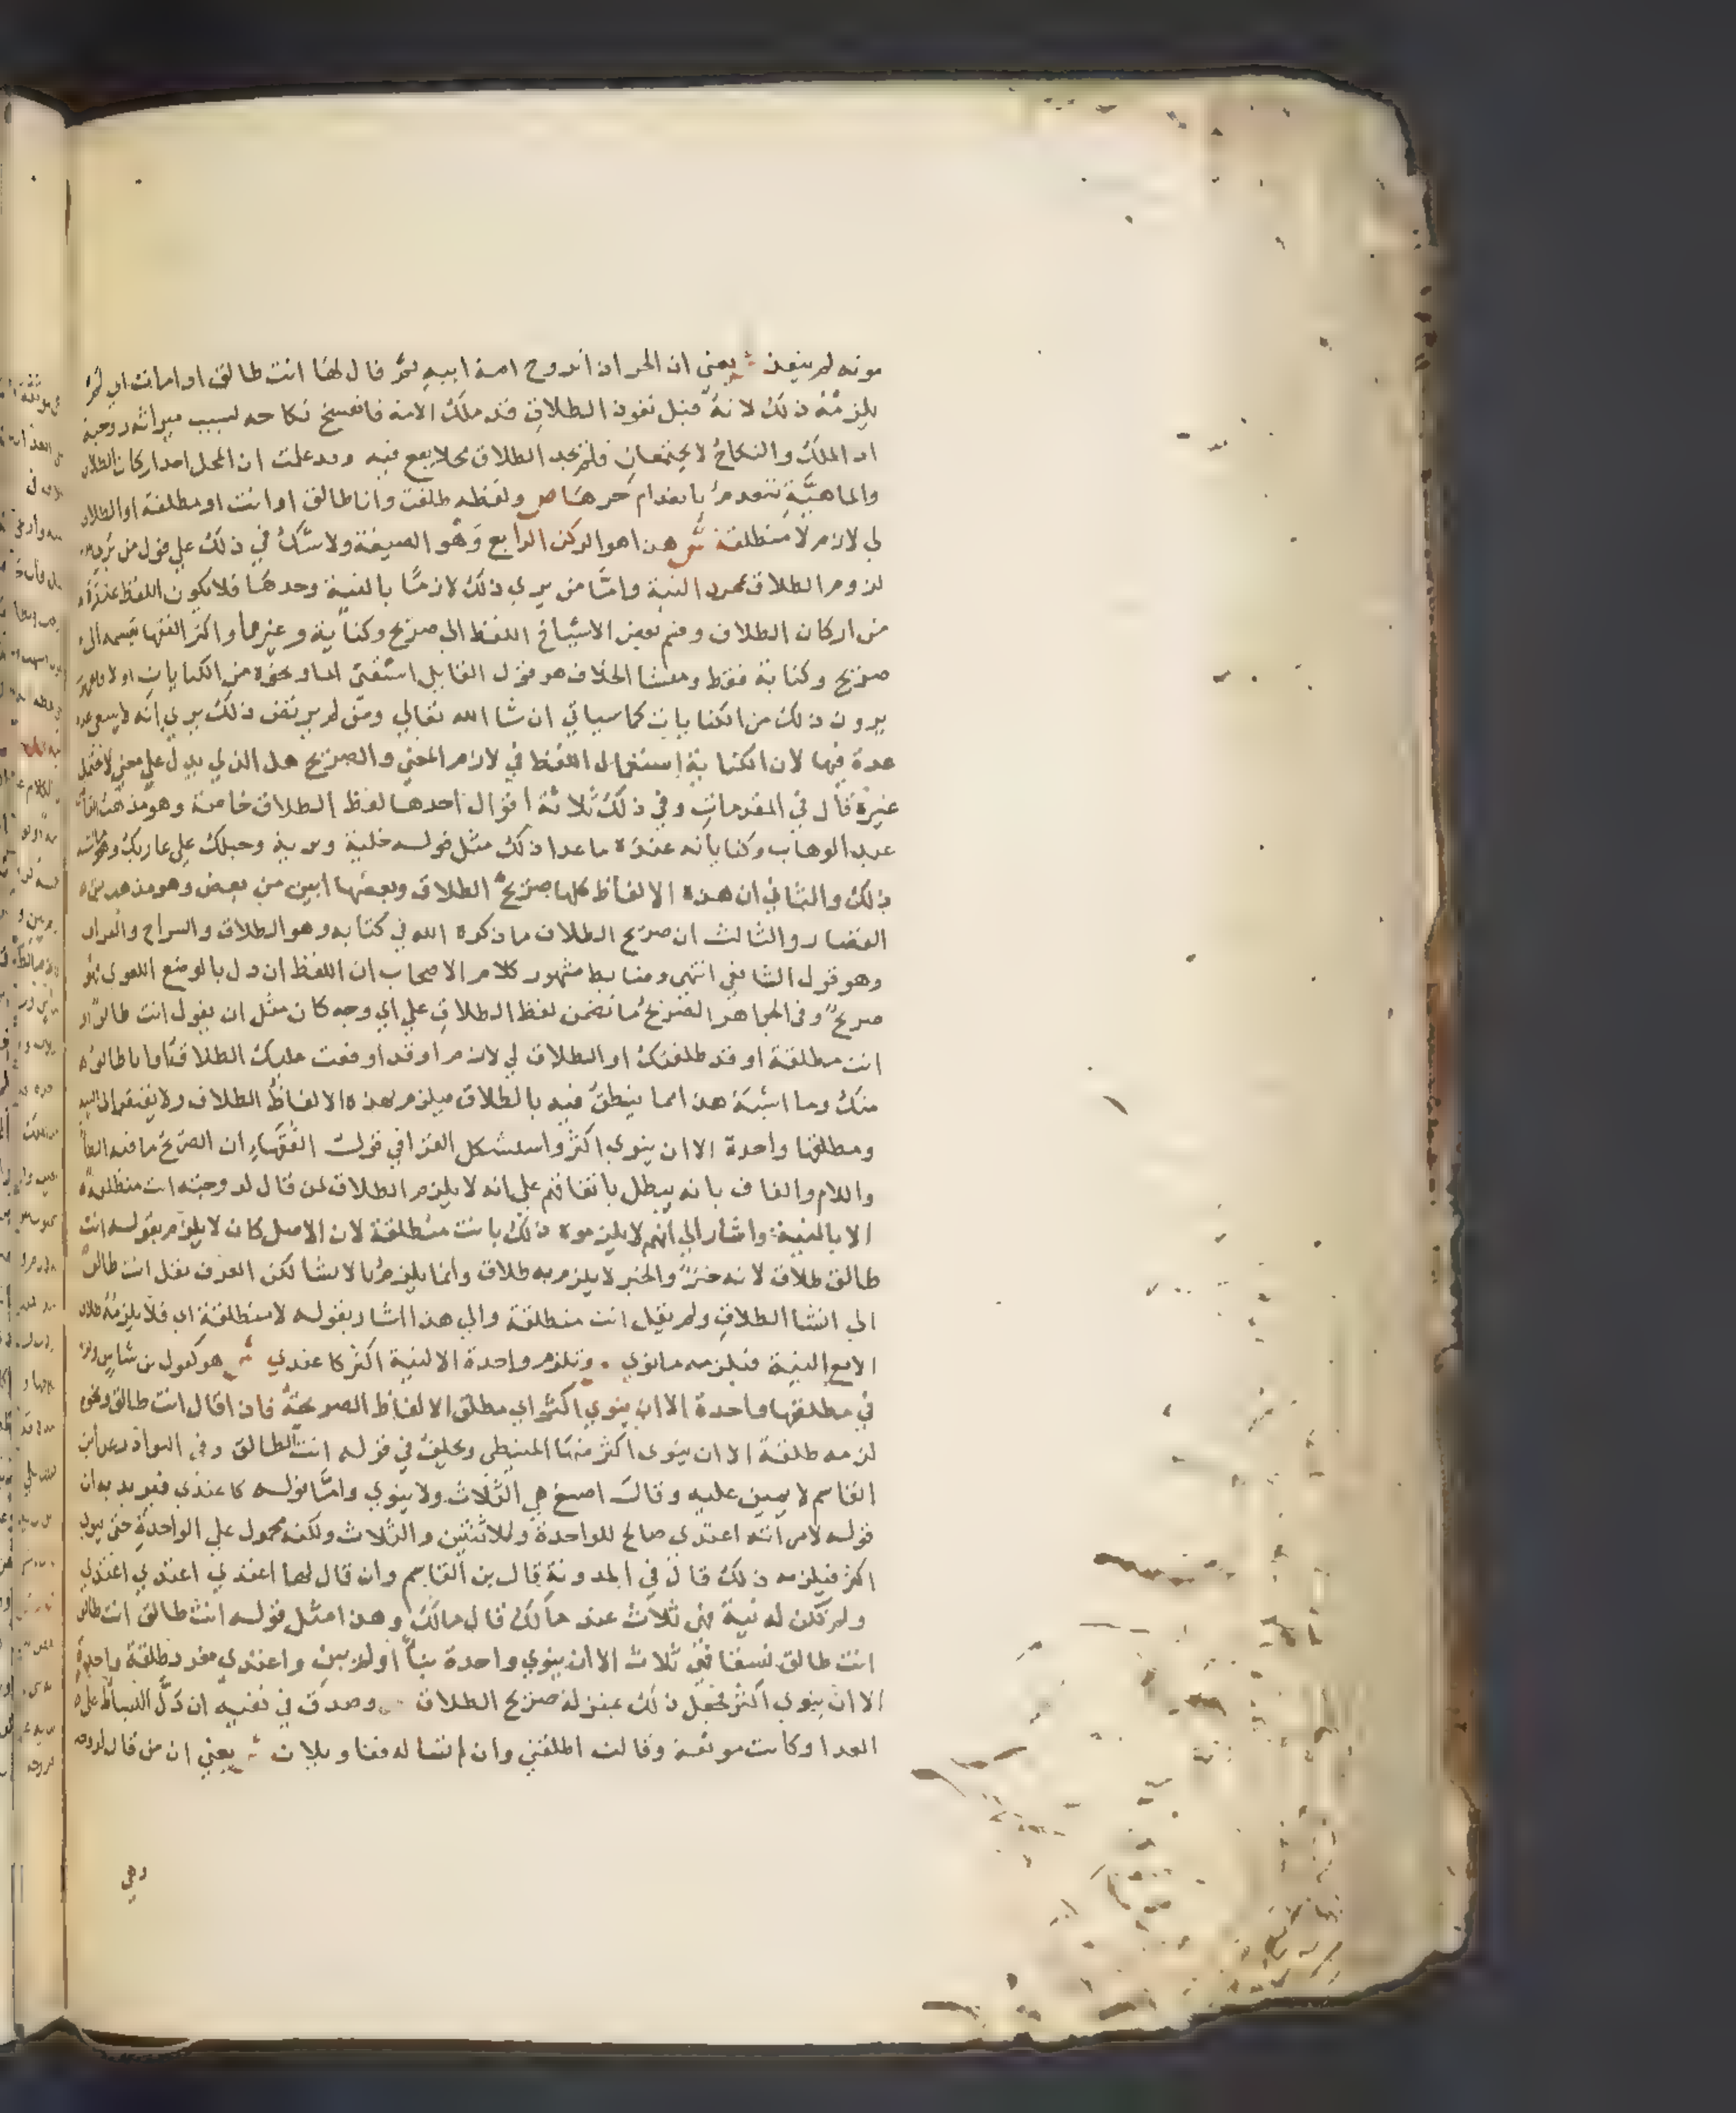 موته لم ينفذ ش يعني ان الحر ان تزوج امة ابيه ثم قال لها انت طالق اذا مات ابي لم
يلزمه ذلك لانه قبل نفوذ الطلاق قد ملك الامة فانفسخ نكاحه لسبب ميراثه زوجته
اذ الملك والنكاح لا يجتمعان فلم يجد الطلاق محلا يقع فيه وقد علمت ان المحل احد اركان الطلاق
والماهية تنعدم بانعدام جزءها ص ولفظه طلقت وانا طالق او انت او مطلقة او الطلاق
لي لازم لا منطلقة ش هذا هو الركن الرابع وهو الصيغة ولا شك في ذلك علي قول من
لزوم الطلاق بمجرد النية واما من يري ذلك لازما بالنية وحدها فلا يكون اللفظ عنده
من اركان الطلاق وقسم بعض الاشياخ اللفظ الي صريح وكناية وغيرهما واكثر الفقها تقسمه الي
صريح وكناية فقط ومنشا الخلاف هو قول القايل اسقني الما ونحوه من الكنايات اولا
يرون ذلك من الكنايات كما سياتي ان شا الله تعالي ومن لم يرتض ذلك يري انه لا
عدة فيها لان الكناية استعمال اللفظ في لازم المعني والصريح هل الذي يدل علي معني لا يحتمل
غيره قال في المقدمات وفي ذلك ثلاثة اقوال احدها لفظ الطلاق خاصة وهو مذهب
عبد الوهاب وكناياته عنده ما عدا ذلك مثل قوله خلية وبرية وحبلك علي غاربك
ذلك والثاني ان هذه الالفاظ كلها صريح الطلاق وبعضها ابين من بعض وهو مذهب بن
القصار والثالث ان صريح الطلاق ما ذكره الله في كتابه وهو الطلاق والسراح والفراق
وهو قول الشافعي انتهي وضابط مشهور كلام الاصحاب ان اللفظ ان دل بالوضع اللغوي فهو
صريح وفي الجواهر الصريح ما تضمن لفظ الطلاق علي اي وجه كان مثل ان يقول انت طالق او
انت مطلقة او قد طلقتك او الطلاق لي لازم او قد اوقعت عليك الطلاق او انا طالق
منك وما اشبه هذا مما ينطق فيه بالطلاق فيلزم بهذه الالفاظ الطلاق ولا يفتقر الي النية
ومطلقها واحدة الا ان ينوي اكثر واستشكل القرافي قول الفقهاء ان الصريح ما فيه الطا
واللام والقاف بانه يبطل باتفاقهم علي انه لا يلزم الطلاق لمن قال لزوجته انت منطلقة
الا بالنية واشار الي انهم لا يلزموه ذلك بانت منطلقة لان الاصل كان لا يلزم بقوله انت
طالق طلاق لانه خبر والخبر لا يلزم به طلاق وانما يلزم بالانشا لكن العرف نقل انت طالق
الي انشا الطلاق ولم ينقل انت منطلقة والي هذا اشار بقوله لا منطلقة اي فلا يلزمه طلاق
الا مع النية فيلزمه ما نوي . وتلزم واحدة الا لنية اكثر كاعتدي ش هو كقول بن شاس
في مطلقها واحدة الا ان ينوي اكثر اي مطلق الالفاظ الصريحة فاذا قال انت طالق ونحوه
لزمه طلقة الا ان ينوي اكثر منها المتيطي ويحلف في قوله انت الطالق وفي النوادر عن ابن
القاسم لا يمين عليه وقال اصبغ هي الثلاث ولا ينوي واما قوله كاعتدي فيريد به ان
قوله لامراته اعتدي صالح للواحدة وللاثنتين والثلاث ولكنه محمول علي الواحدة حتي ينوي
اكثر فيلزمه ذلك قال في المدونة قال بن القاسم وان قال لها اعتدي اعتدي اعتدي
ولم تكن له نية فهي ثلاث عند مالك قال مالك وهذا مثل قوله انت طالق انت طالق
انت طالق نسقا فهي ثلاث الا ان ينوي واحدة بنا او لم يبن واعتدي مفرد طلقة واحدة
الا ان ينوي اكثر فجعل ذلك بمنزلة صريح الطلاق . وصدق في نفيه ان دل البساط علي
العد او كانت موثقة وقالت اطلقني وان لم تساله فتاويلان ش يعني ان من قال لزوجته
وهي